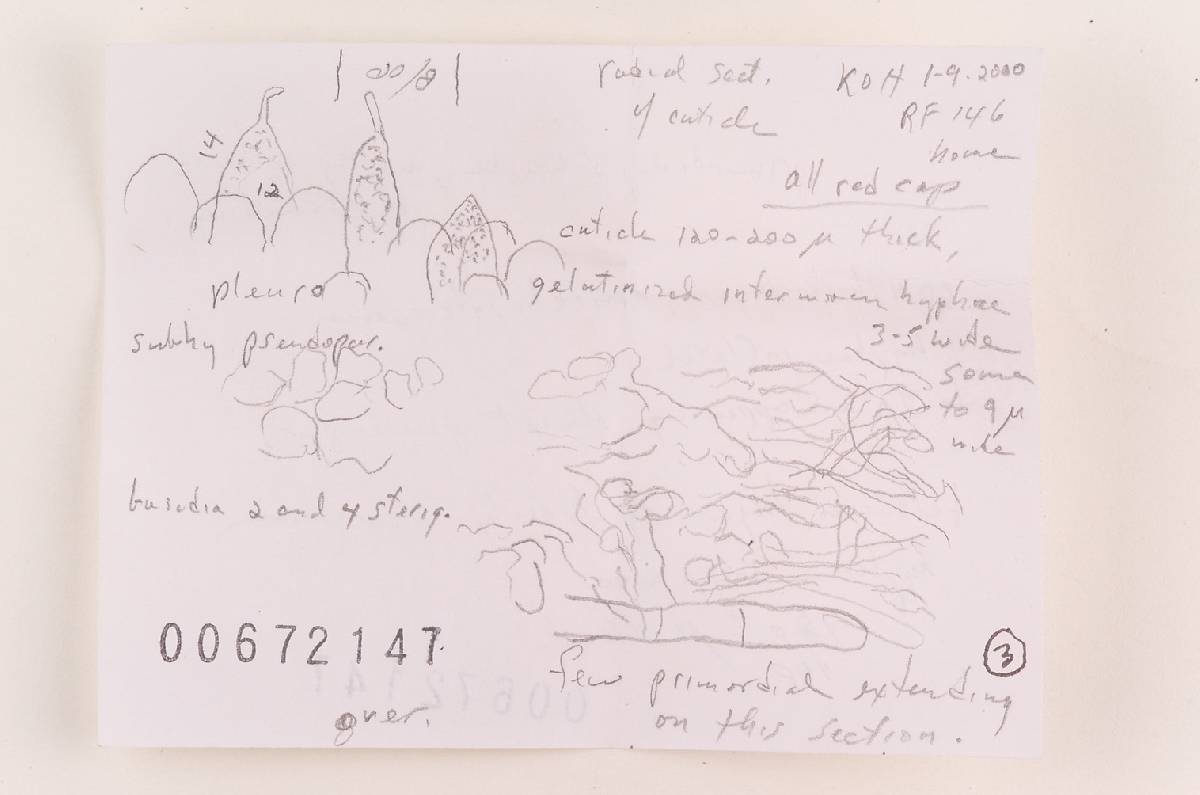 radial sect.
of cuticle
KOH 1-9-2000
RF 146
home
all red cap
14
12
cuticle 120-200 µ thick,
gelatinized interwoven hyphae
3-5 wide
some
to 9 µ
wide
pleuro
subhy pseudopar.
basidia 2 and 4 sterig.
00672147
few primordial extending
on this section.
3
over.